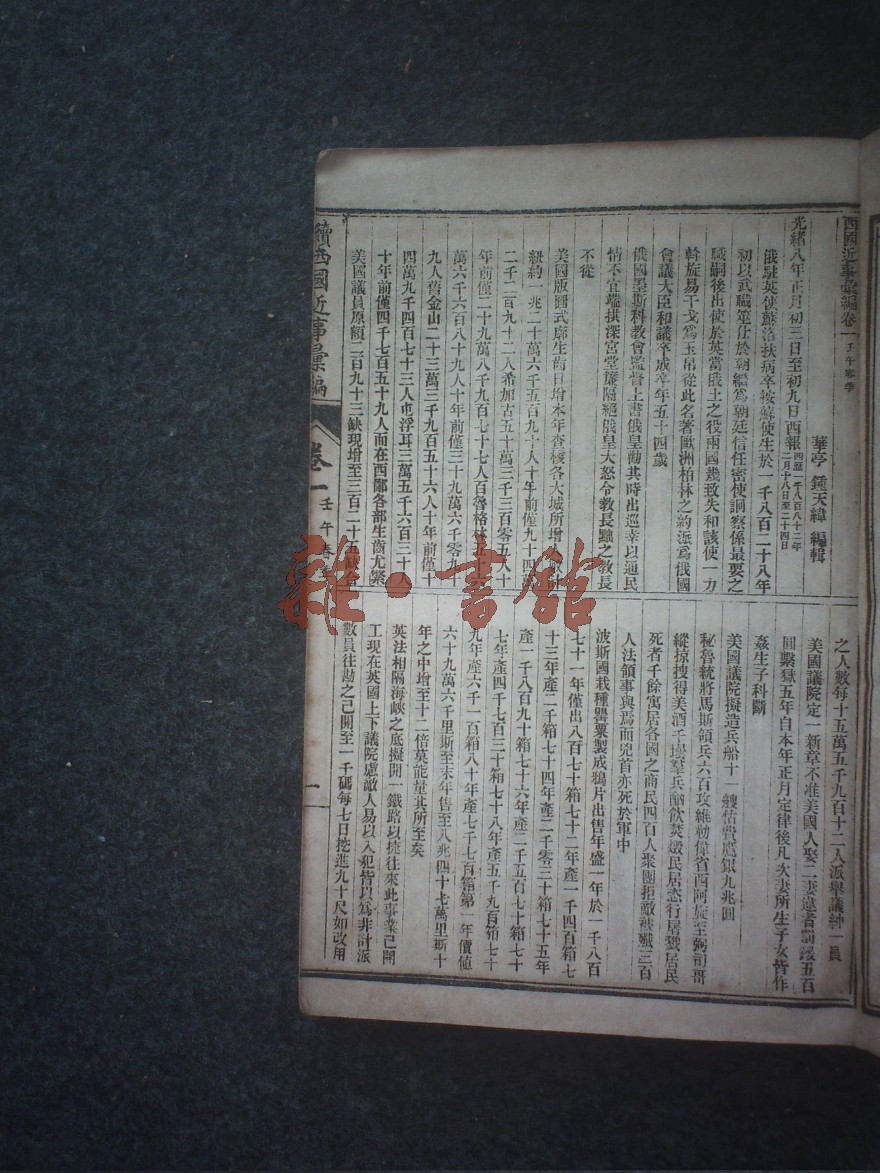 西國近事彙編卷一 壬午春季
華亭 鍾天緯 編輯
光緒八年正月初三日至初九日西報 西歷一千八百八十二年二月十八日至二十四日
俄駐英使蘇洛扶病卒按蘇使生於一千八百二十八年
初以武職筮仕於朝繼爲朝廷信任密使詗察係最要之
職嗣後出使於英當俄土之役兩國幾致失和該使一力
斡旋易干戈爲玉帛從此名著歐洲柏林之約派爲俄國
會議大臣和議卒成卒年五十四歲
俄國墨斯科教會監督上書俄皇勸其時出巡幸以通民
情不宜端拱深宮堂廉隔絕俄皇大怒令教長黜之教長
不從
美國版圖式廓生齒日增本年查核各大城所增人數計
紐約一兆二十萬六千五百九十人十年前僅九十四萬
二千二百九十二人希加古五十萬三千三百零五人十
年前僅二十九萬八千九百七十七人百魯格林五十六
萬六千六百八十九人十年前僅三十九萬六千零九十
九人舊金山二十三萬三千九百五十六人十年前僅十
四萬九千四百七十三人屯浮耳三萬五千六百三十人
十年前僅四千七百五十九人而在西鄙各部生齒尤繁
美國議員原額二百九十三缺現增至三百二十五缺
之人數每十五萬五千九百十二人派舉議紳一員
美國議院定一新章不准美國人娶二妻違者罰銀五百
圓繫獄五年自本年正月定律後凡次妻所生子女皆作
姦生子科斷
美國議院擬造兵船十一艘估費鷹銀九兆圓
秘魯統將馬斯領兵六百攻維勒偉省西阿旋至弼司哥
縱掠搜得美酒千擡羣兵酗飲焚燬民居恣行屠戮居民
死者千餘寓居各國之商民四百人聚團拒敵被殲三百
人法領事與焉而兇首亦死於軍中
波斯國栽種罌粟製成鴉片出售年盛一年於一千八百
七十一年僅出八百七十箱七十二年產一千四百箱七
十三年產二千箱七十四年產二千零三十箱七十五年
產一千八百九十箱七十六年產二千五百七十箱七十
七年產四千七百三十箱七十八年產五千九百箱七十
九年產六千一百箱八十年產七千七百箱第一年價値
六十九萬六千里斯至末年售至八兆四十七萬里斯十
年之中增至十二倍莫能量其所至矣
英法相隔海峽之底擬開一鐵路以捷往來此事業已開
工現在英國上下議院慮敵人易以入犯皆以爲非計派
數員往勘之已開至一千碼每七日挖進九十尺如改用
續西國近事彙編
卷一 壬午春
一
雜·書館